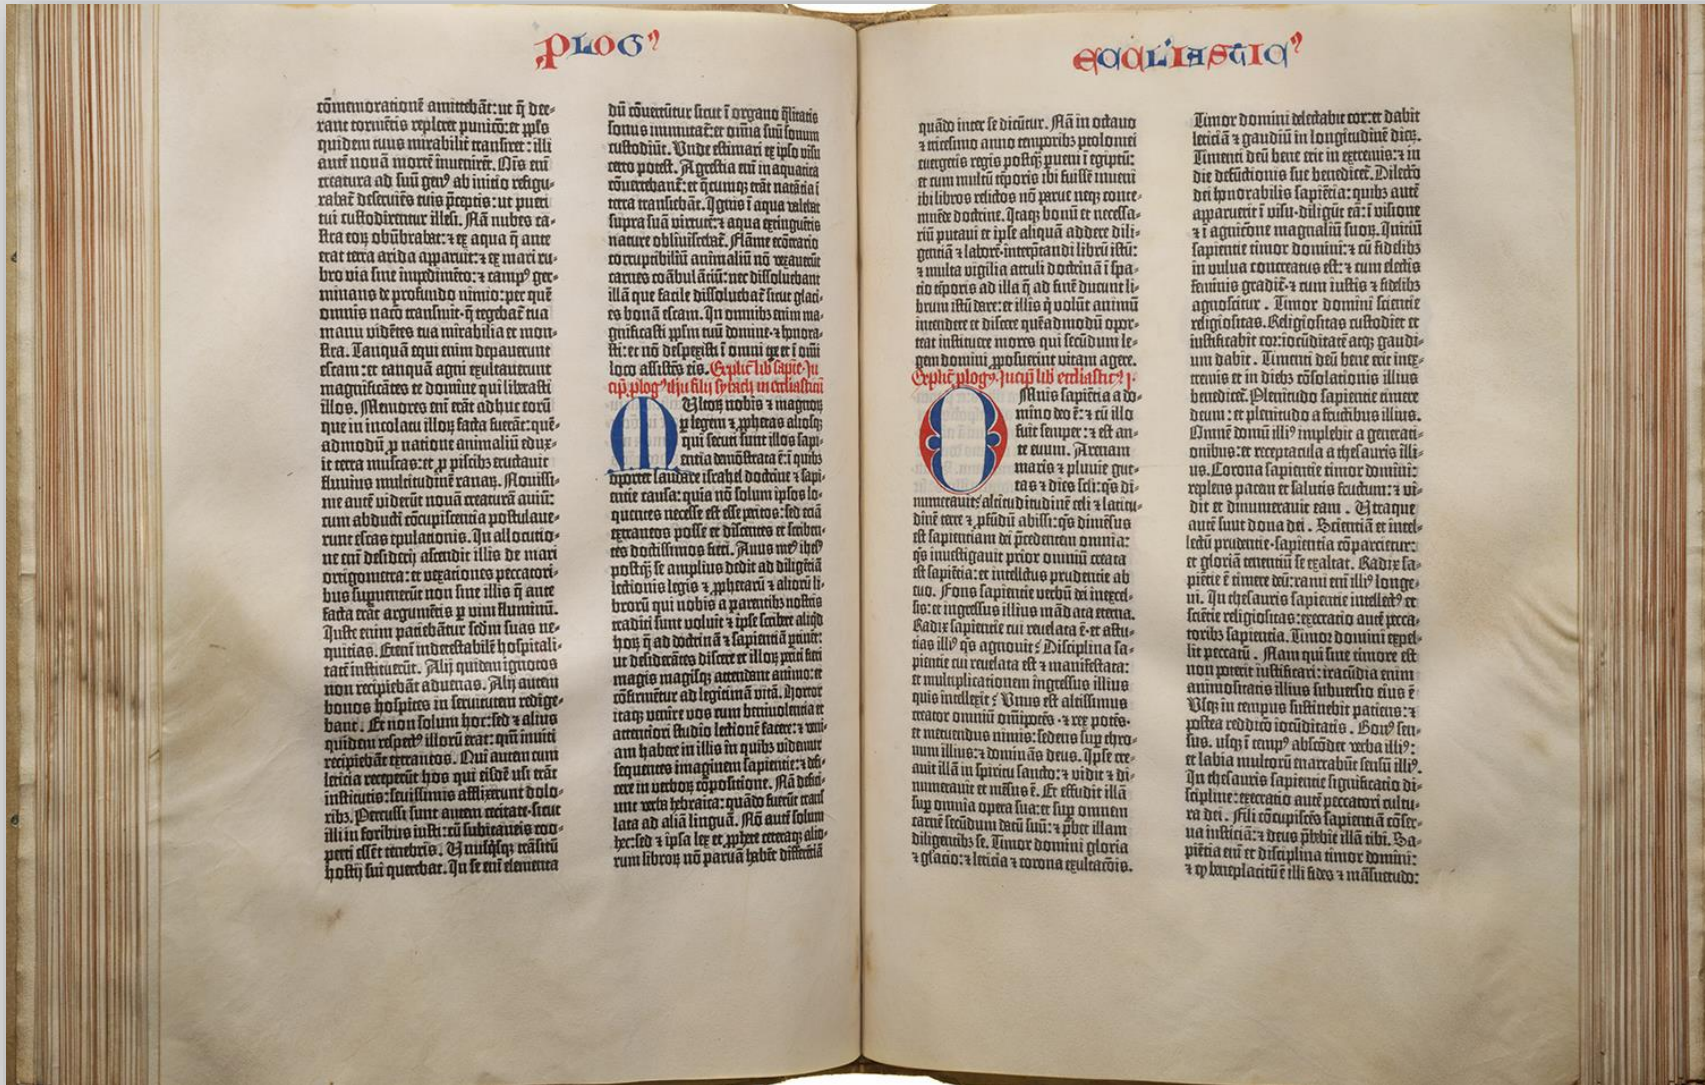 PLOG⁹
cōmemorationē amittebāt: ut q̄ dee-
rant tormētis repleret punitō: et pp̄ls
quidem tuus mirabilit̄ transiret: illi
autē novā mortē invenirēt. Om̄s eni
creatura ad suū gen⁹ ab initio refigu-
rabat̄ deserviēs tuis p̄ceptis: ut pueri
tui custodirentur illesi. Nā nubes ca-
stra eoꝝ obūbrabat: ⁊ ex aqua q̄ ante
erat terra arida apparuit: ⁊ ex mari ru-
bro via sine impedimēto: ⁊ camp⁹ ger-
minans de profundo nimio: per quē
omnis natō transivit· q̄ tegebat̄ tua
manu vidētes tua mirabilia et mon-
stra. Tanquā equi enim depaverunt
escam: et tanquā agni exultaverunt
magnificātes te domine qui liberasti
illos. Memores eni erāt adhuc eorū
que in incolatu illoꝝ facta fuerāt: quē-
admodū ꝓ natione animaliū edux-
it terra muscas: et ꝓ piscibꝫ eructavit
fluvius multitudinē ranaꝝ. Novissi-
me autē viderūt novā creaturā aviū:
cum abducti cōcupiscentia postulave-
runt escas epulationis. In allocutio-
ne eni desiderij ascendit illis de mari
ortigometra: et vexationes peccatori-
bus supvenerūt non sine illis q̄ ante
facta erāt argumētis ꝑ vim fluminū.
Juste enim patiebātur scdm suas ne-
quitias. Etenī indetestabilē hospitali-
tatē instituerūt. Alij quidem ignotos
non recipiebāt advenas. Alij autem
bonos hospites in servitutem redige-
bant. Et non solum hoc: sed ⁊ alius
quidem respect⁹ illorū erat: qm̄ inviti
recipiebāt extraneos. Qui autem cum
leticia receperūt hos qui eisdē usi erāt
institutis: sevissimis afflixerunt dolo-
ribꝫ. Percussi sunt autem cecitate· sicut
illi in foribus iusti: cū subitaneis coo-
perti essēt tenebris. Unusq̄sqꝫ trāsitū
hostij sui querebat. In se eni elementa
dū cōvertūtur sicut ī organo q̄litatis
sonus inmutat̄: et om̄ia suū sonum
custodiūt. Unde estimari ex ipso visu
certo potest. Agrestia eni in aquatica
cōvertebant̄: et q̄cumqꝫ erāt natātia ī
terra transiebāt. Ignis ī aqua valebat
supra suā virtutē: ⁊ aqua extinguētis
nature obliviscebat̄. Flāme ecōtrario
corruptibiliū animaliū nō vexaverūt
carnes coābulātiū: nec dissolvebant
illā que facile dissolvebat̄ sicut glaci-
es bonā escam. In omnibꝫ enim ma-
gnificasti pplm tuū domine· ⁊ honora-
sti: et nō despexisti ī omni tpe et ī om̄i
loco assistēs eis. Explic̄ lib sapie· In
cip̄ plog⁹ ihu filij syrach in ecclīasticū
Multoꝝ nobis ⁊ magnoꝝ
ꝑ legem ⁊ ꝓphetas aliosqꝫ
qui secuti sunt illos sapi-
entia demōstrata ē: ī quibꝫ
oportet laudare israhel doctrine ⁊ sapi-
entie causa: quia nō solum ipsos lo-
quentes necesse est esse peritos: sed etiā
extraneos posse et discentes et scriben-
tes doctissimos fieri. Avus me⁹ ihes⁹
postq̄ꝫ se amplius dedit ad diligētiā
lectionis legis ⁊ ꝓphetarū ⁊ aliorū li-
brorū qui nobis a parentibꝫ nostris
traditi sunt voluit ⁊ ipse scribere aliq̄d
hoꝝ q̄ ad doctrinā ⁊ sapientiā ptinēt:
ut desiderātes discere et illoꝝ periti fieri
magis magisqꝫ attendant animo: et
cōfirmētur ad legitimā vitā. Hortor
itaqꝫ venire vos cum benivolentia et
attentiori studio lectionē facere: ⁊ veni-
am habere in illis in quibꝫ videmur
sequentes imaginem sapientie: ⁊ defi-
cere in verboꝝ cōpositione. Nā defici-
unt verba hebraica: quādo fuerūt trans
lata ad aliā linguā. Nō autē solum
hec: sed ⁊ ipsa lex et ꝓphete ceteraqꝫ alio-
rum libroꝝ nō parvā habēt differētiā
ECCLIASTIC⁹
quādo inter se dicūtur. Nā in octavo
⁊ tricesimo anno temporibꝫ ptolomei
evergetis regis postq̄ꝫ pveni ī egiptū:
et cum multū tēporis ibi fuissē inveni
ibi libros relictos nō parve neqꝫ conte-
mnēde doctrine. Itaqꝫ bonū et necessa-
riū putavi et ipse aliquā addere dili-
gentiā ⁊ laborē· interp̄tandi librū istū:
⁊ multa vigilia attuli doctrinā ī spa-
cio tēporis ad illa q̄ ad finē ducunt li-
brum istū dare: et illis q̄ volūt animū
intendere et discere quēadmodū opor-
teat instituere mores qui secūdum le-
gem domini ꝓposuerint vitam agere.
Explic̄ plog⁹. Incip̄ lib ecclīastic⁹ j·
Omnis sapiētia a do-
mino deo ē: ⁊ cū illo
fuit semper: ⁊ est an-
te evum. Arenam
maris ⁊ pluvie gut-
tas ⁊ dies scli: q̄s di-
numeravit? altitudinē celi ⁊ latitu-
dinē terre ⁊ ꝓfūdū abissi: q̄s dimēsus
est sapientiam dei p̄cedentem omnia:
q̄s investigavit prior omniū creata
est sapiētia: et intellctus prudentie ab
evo. Fons sapientie verbū dei inexcel-
sis: et ingressus illius mādata eterna.
Radix sapientie cui revelata ē· et astu-
tias illi⁹ q̄s agnovit? Disciplina sa-
pientie cui revelata est ⁊ manifestata:
et multiplicationem ingressus illius
quis intellexit? Unus est altissimus
creator omniū om̄ipotēs· ⁊ rex potēs·
et metuendus nimis: sedens sup thro-
num illius: ⁊ domināns deus. Ipse cre-
avit illā in spiritu sancto: ⁊ vidit ⁊ di-
numeravit et mēsus ē. Et effudit illā
sup omnia opera sua: et sup omnem
carnē secūdum datū suū: ⁊ p̄bet illam
diligentibꝫ se. Timor domini gloria
⁊ gl̄atio: ⁊ leticia ⁊ corona exultatōis.
Timor domini delectabit cor: et dabit
leticiā ⁊ gaudiū in longitudinē dieꝝ.
Timenti deū bene erit in extremis: ⁊ in
die defūctionis sue benedicet̄. Dilectō
dei honorabilis sapiētia: quibꝫ autē
apparuerit ī visu· diligūt eā: ī visione
⁊ ī agnitōne magnaliū suoꝝ. Initiū
sapientie timor domini: ⁊ cū fidelibꝫ
in vulva concreatus est: ⁊ cum electis
feminis gradit̄· ⁊ cum iustis ⁊ fidelibꝫ
agnoscitur. Timor domini scientie
religiositas. Religiositas custodiet et
iustificabit cor: iocūditatē atqꝫ gaudi-
um dabit. Timenti deū bene erit inex-
tremis et in diebꝫ cōsolationis illius
benedicet̄. Plenitudo sapientie timere
deum: et plenitudo a fructibus illius.
Omnē domū illi⁹ implebit a generati-
onibus: et receptacula a thesauris illi-
us. Corona sapientie timor domini:
replens pacem et salutis fructum: ⁊ vi-
dit et dinumeravit eam. Utraque
autē sunt dona dei. Scientiā et intel-
lectū prudentie· sapientia cōparcietur:
et gloriā tenentiū se exaltat. Radix sa-
piētie ē timere deū: rami eni illi⁹ longe-
vi. In thesauris sapientie intellect⁹ et
sciētie religiositas: execratio autē pecca-
toribꝫ sapientia. Timor domini expel-
lit peccatū. Nam qui sine timore est
non poterit iustificari: iracūdia enim
animositatis illius subversio eius ē
Usqꝫ in tempus sustinebit patiens: ⁊
postea redditō iocūditatis. Bon⁹ sen-
sus· usqꝫ ī temp⁹ abscōdet verba illi⁹:
et labia multorū enarrabūt sensū illi⁹.
In thesauris sapientie significatio di-
scipline: execratio autē peccatori cultu-
ra dei. Fili cōcupiscēs sapientiā cōser-
va iusticiā: ⁊ deus p̄bebit illā tibi. Sa-
piētia eni et disciplina timor domini:
⁊ qꝫ beneplacitū ē illi fides ⁊ māsuetudo: